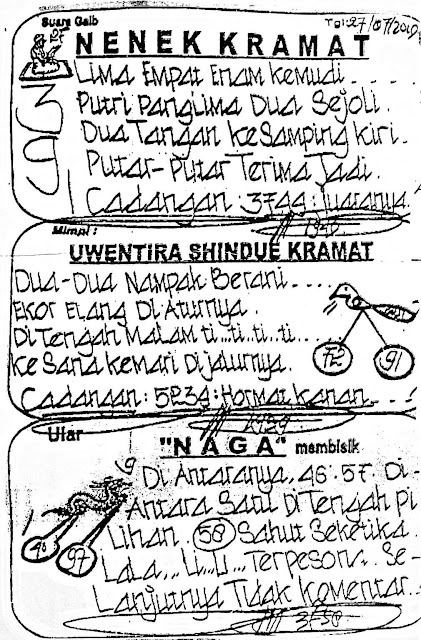 Suara Gaib
Tgl: 27/07/2019
NENEK KRAMAT
Lima Empat Enam Kemudi....
Putri Panglima Dua Sejoli.
Dua Tangan Ke Samping Kiri.
Putar-Putar Terima Jadi.
Cadangan: 3744: Juaranya.
39
Mimpi:
UWENTIRA SHINDUE KRAMAT
Dua-Dua Nampak Berani....
Ekor Elang Di Aturnya.
Di Tengah Malam ti..ti..ti..ti...
Ke Sana Kemari Dijalurnya.
Cadangan: 5234: Hormat Kanan...!
72
91
Ular
"NAGA" membisik
Di Antaranya. 46.57. Di-
Antara Satu Di Tengah Pi
Lihan. 58 Sahut Seketika.
Lala...Li...Li...Terpesona. Se-
Lanjutnya Tidak Komentar..
9
46
97